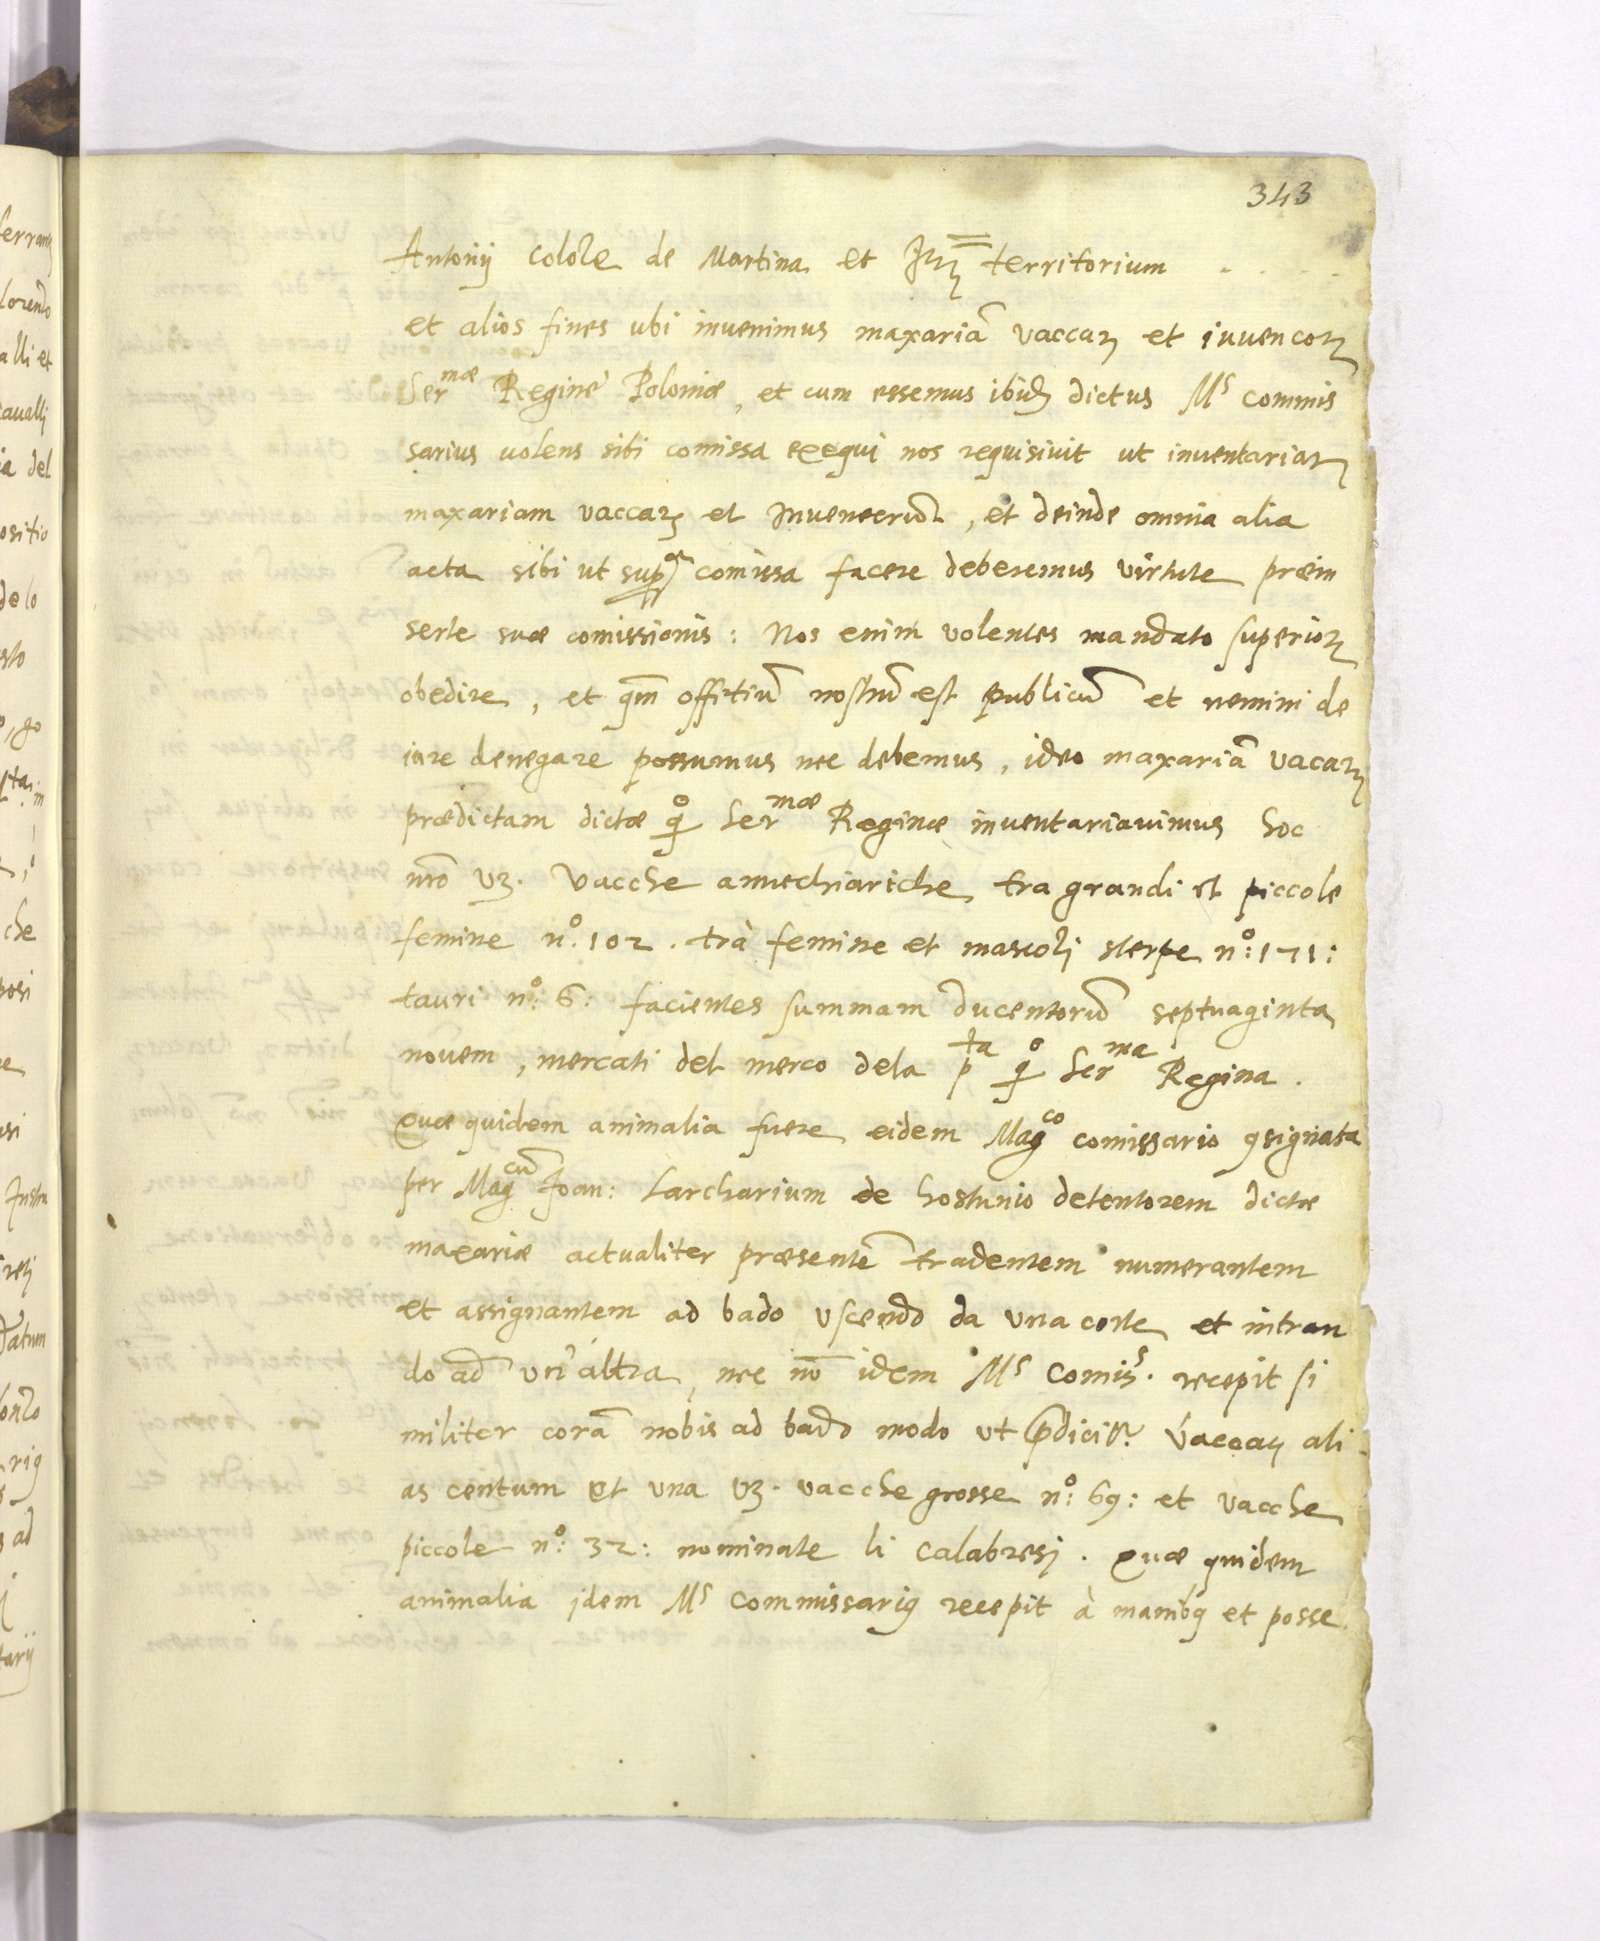 343
Antonij Colole de Martina et territorium . . . .
et alios fines ubi invenimus maxariā vaccarꝫ et iuvencorꝫ
Serᵐᵃᵉ Reginę Poloniæ, et cum essemus ibidꝫ dictus Mˢ commis
sarius volens sibi comissa exequi nos requisivit ut inventariarꝫ
maxariam vaccarꝫ et Iuvencorū, et deinde omnia alia
acta sibi ut supᵃ comissa facere deberemus virtute præin
serte suæ comissionis: Nos enim volentes mandato superiorꝫ
obedire, et qm̄ offitiū nostrū est publicū et nemini de
iure denegare possumus nec debemus, ideo maxariā vacarꝫ
prædictam dictæ q̊ Serᵐᵃᵉ Reginæ inventariavimus hoc
mō vꝫ. Vacche annechiariche tra grandi et piccole
femine n°. 102. trà femine et mascolj sterpe n°: 171:
tauri n°: 6: facientes summam ducentorū septuaginta
novem, mercati del merco dela pᵗᵃ q̊ Serᵐᵃ Regina.
Quæ quidem animalia fuere eidem Magᶜᵒ comissario ꝯsignata
per Magᶜᵘ̄ Joan: Larcharium de hostunio detentorem dictæ
maxariæ actualiter præsentē tradentem numerantem
et assignantem ad bado uscendo da una corte et intran
do ad un' altra, nec nō idem Mˢ Comisˢ. recepit si
militer corā nobis ad bado modo ut p̄dicitr. Vaccas ali
as centum et una vꝫ. vacche grosse n°: 69: et vacche
piccole n°: 32: nominate li calabresj. Quæ quidem
animalia idem Mˢ Commissariꝰ recepit à manibꝰ et posse